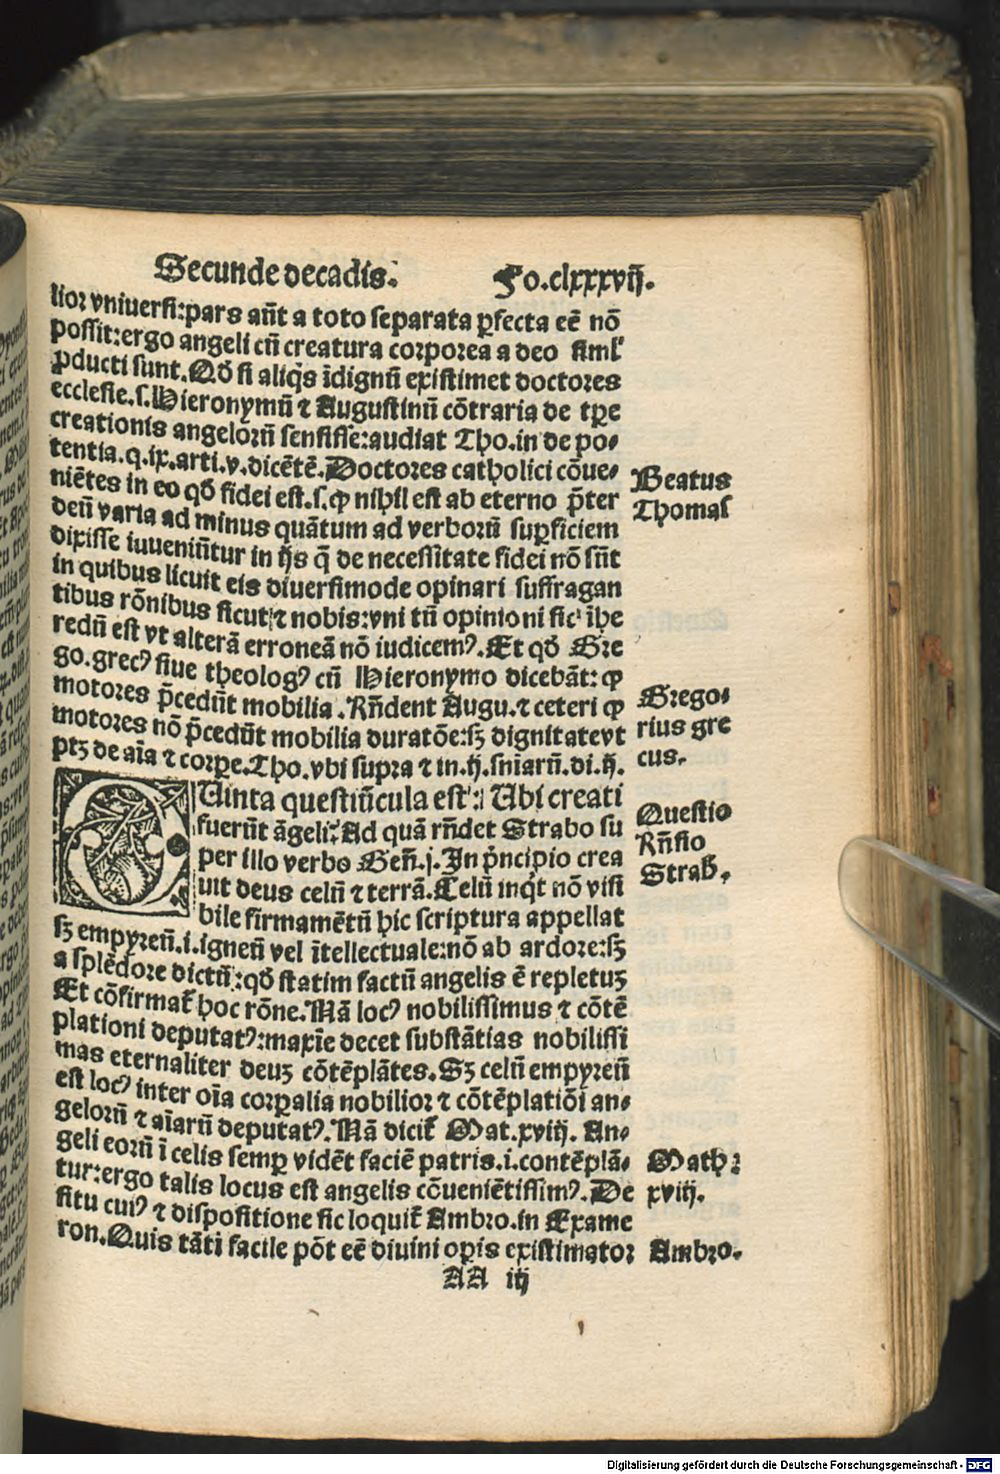 Secunde decadis. Fo.clxxxvij.
lior vniuersi:pars aūt a toto separata ꝑfecta eē nō
possit:ergo angeli cū creatura corporea a deo siml'
ꝓducti sunt. Qđ si aliq̇s īdignū existimet doctores
ecclesie.s.Hieronymū ⁊ Augustinū cōtraria de tꝑe
creationis angelorū sensisse:audiat Tho.in de po-
tentia.q.ix.arti.v.dicētē.Doctores catholici cōue-
niētes in eo qđ fidei est.s.ꝙ nihil est ab eterno p̄ter
deū varia ad minus quātum ad verborū suꝑficiem
dixisse iuueniūtur in ijs q̄ de necessitate fidei nō sūt
in quibus licuit eis diuersimode opinari suffragan
tibus rōnibus sicut ⁊ nobis:vni tn̄ opinioni sic īhe
redū est vt alterā erroneā nō iudicemꝰ. Et qđ Gre
go.grecꝰ siue theologꝰ cū Hieronymo dicebāt:ꝙ
motores p̄cedūt mobilia.Rn̄dent Augu.⁊ ceteri ꝙ
motores nō p̄cedūt mobilia duratōe:sꝫ dignitatevt
ptꝫ de aīa ⁊ corꝑe.Tho.vbi supra ⁊ in.ij.sniarū.di.ij.
QUinta questiūcula est: Ubi creati
fuerūt āgeli: Ad quā rn̄det Strabo su
per illo verbo Geñ.j.In pͥncipio crea
uit deus celū ⁊ terrā.Celū inqͥt nō visi
bile firmamētū hic scriptura appellat
sꝫ empyreū.i.igneū vel ītellectuale:nō ab ardore:sꝫ
a splēdore dictū:qđ statim factū angelis ē repletuꝫ
Et cōfirmat᷑ hoc rōne.Nā locꝰ nobilissimus ⁊ cōtē
plationi deputatꝰ:maxīe decet substātias nobilissi
mas eternaliter deuꝫ cōtēplātes.Sꝫ celū empyreū
est locꝰ inter oīa corꝑalia nobilior ⁊ cōtēplatiōi an-
gelorū ⁊ aīarū deputatꝰ.Nā dicit᷑ Mat.xviij. An-
geli eorū ī celis semꝑ vidēt faciē patris.i.contēplā-
tur:ergo talis locus est angelis cōueniētissimꝰ.De
situ cuiꝰ ⁊ dispositione sic loquit᷑ Ambro.in Exame
ron.Quis tāti facile pōt eē diuini oꝑis existimator
AA iij
Beatus
Thomas
Grego-
rius gre
cus.
Questio
Rn̄sio
Strab.
Math:
xviij.
Ambro.
Digitalisierung gefördert durch die Deutsche Forschungsgemeinschaft - DFG